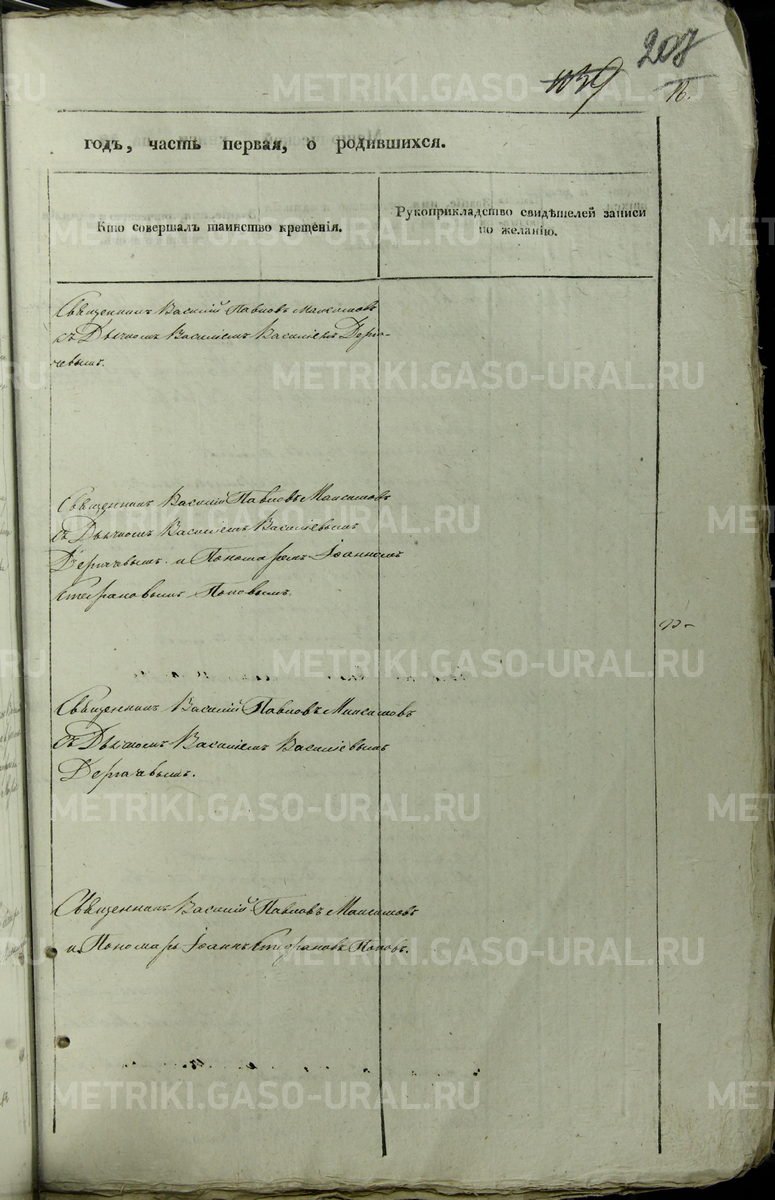 207
1039
16.
годъ, часть первая, о родившихся.
Кто совершалъ таинство крещенія.
Рукоприкладство свидѣтелей записи
по желанію.
Священникъ Василій Павловъ Максимовъ
съ Дьячкомъ Василіемъ Василіевымъ Дерга-
чевымъ.
Священникъ Василій Павловъ Максимовъ
съ Дьячкомъ Василіемъ Василіевымъ
Дергачевымъ и Пономаремъ Іоанномъ
Стефановымъ Поповымъ.
Священникъ Василій Павловъ Максимовъ
съ Дьячкомъ Василіемъ Василіевымъ
Дергачевымъ.
Священникъ Василій Павловъ Максимовъ
и Пономарь Іоаннъ Стефановъ Поповъ.
METRIKI.GASO-URAL.RU